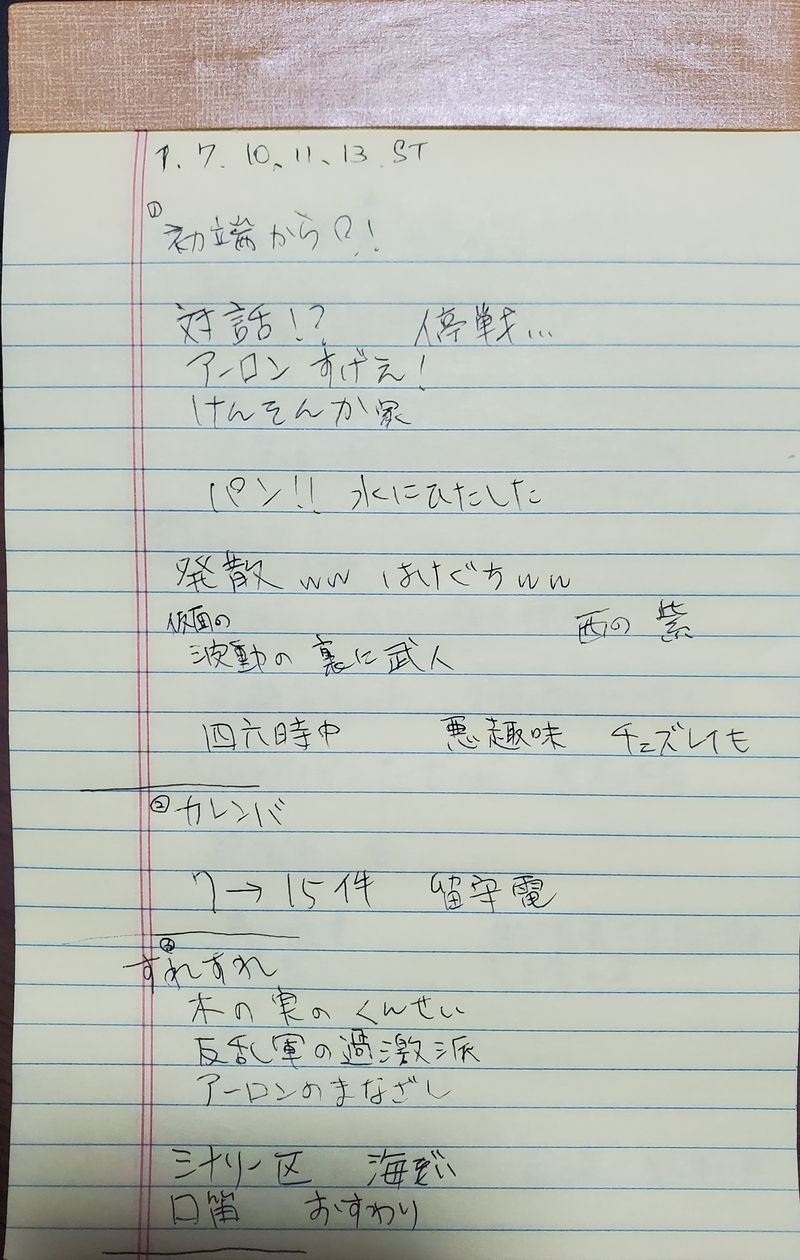 1. 7. 10、11、13 ST
① 初端から?!
対話!? 停戦…
アーロン すげえ!
けんそんか家
パン!! 水にひたした
発散ww はけぐちww
仮面の 西の 紫
波動の 裏に武人
四六時中 悪趣味 チェズレイも
② カレンバ
7→15件 留守電
③
すれすれ
木の実の くんせい
反乱軍の過激派
アーロンのまなざし
ミナリー区 海ぞい
口笛 おすわり